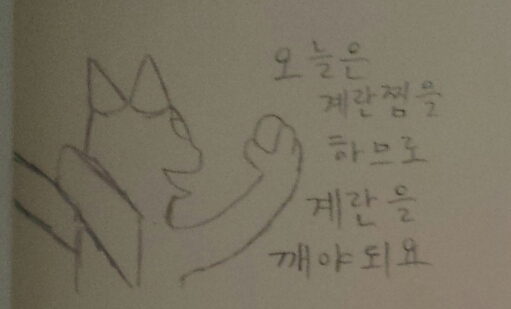 오늘은
계란찜을
하므로
계란을
깨야되요